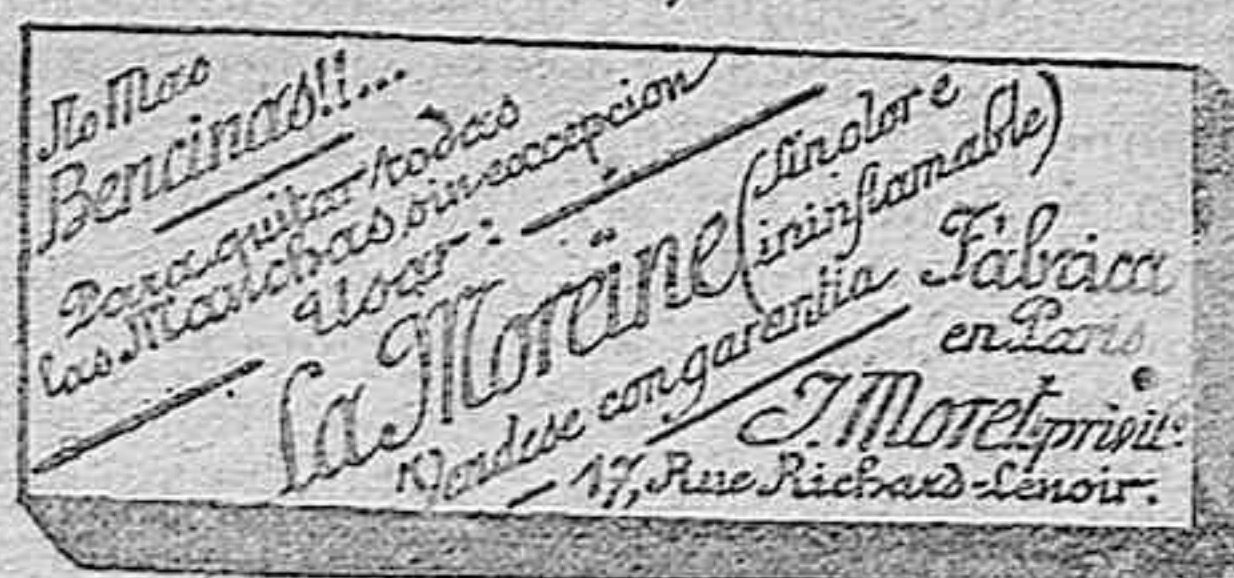 No Mas
Bencinas!!...
Para quitar todas
las Manchas sin excepcion
Usar:
La Moreïne
(sin olor e
ininflamable)
Vendese con garantia
Fábrica
en Paris
J. Moret, privil:
17, Rue Richard-Lenoir.